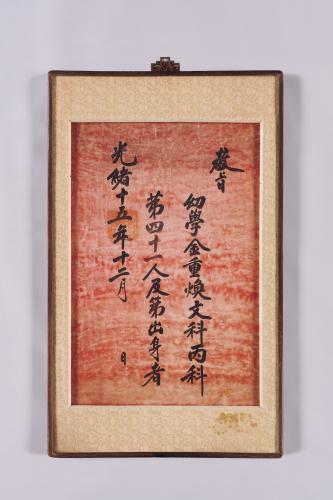 敎旨
幼學金重煥文科丙科
第四十一人及第出身者
光緖十五年十二月 日